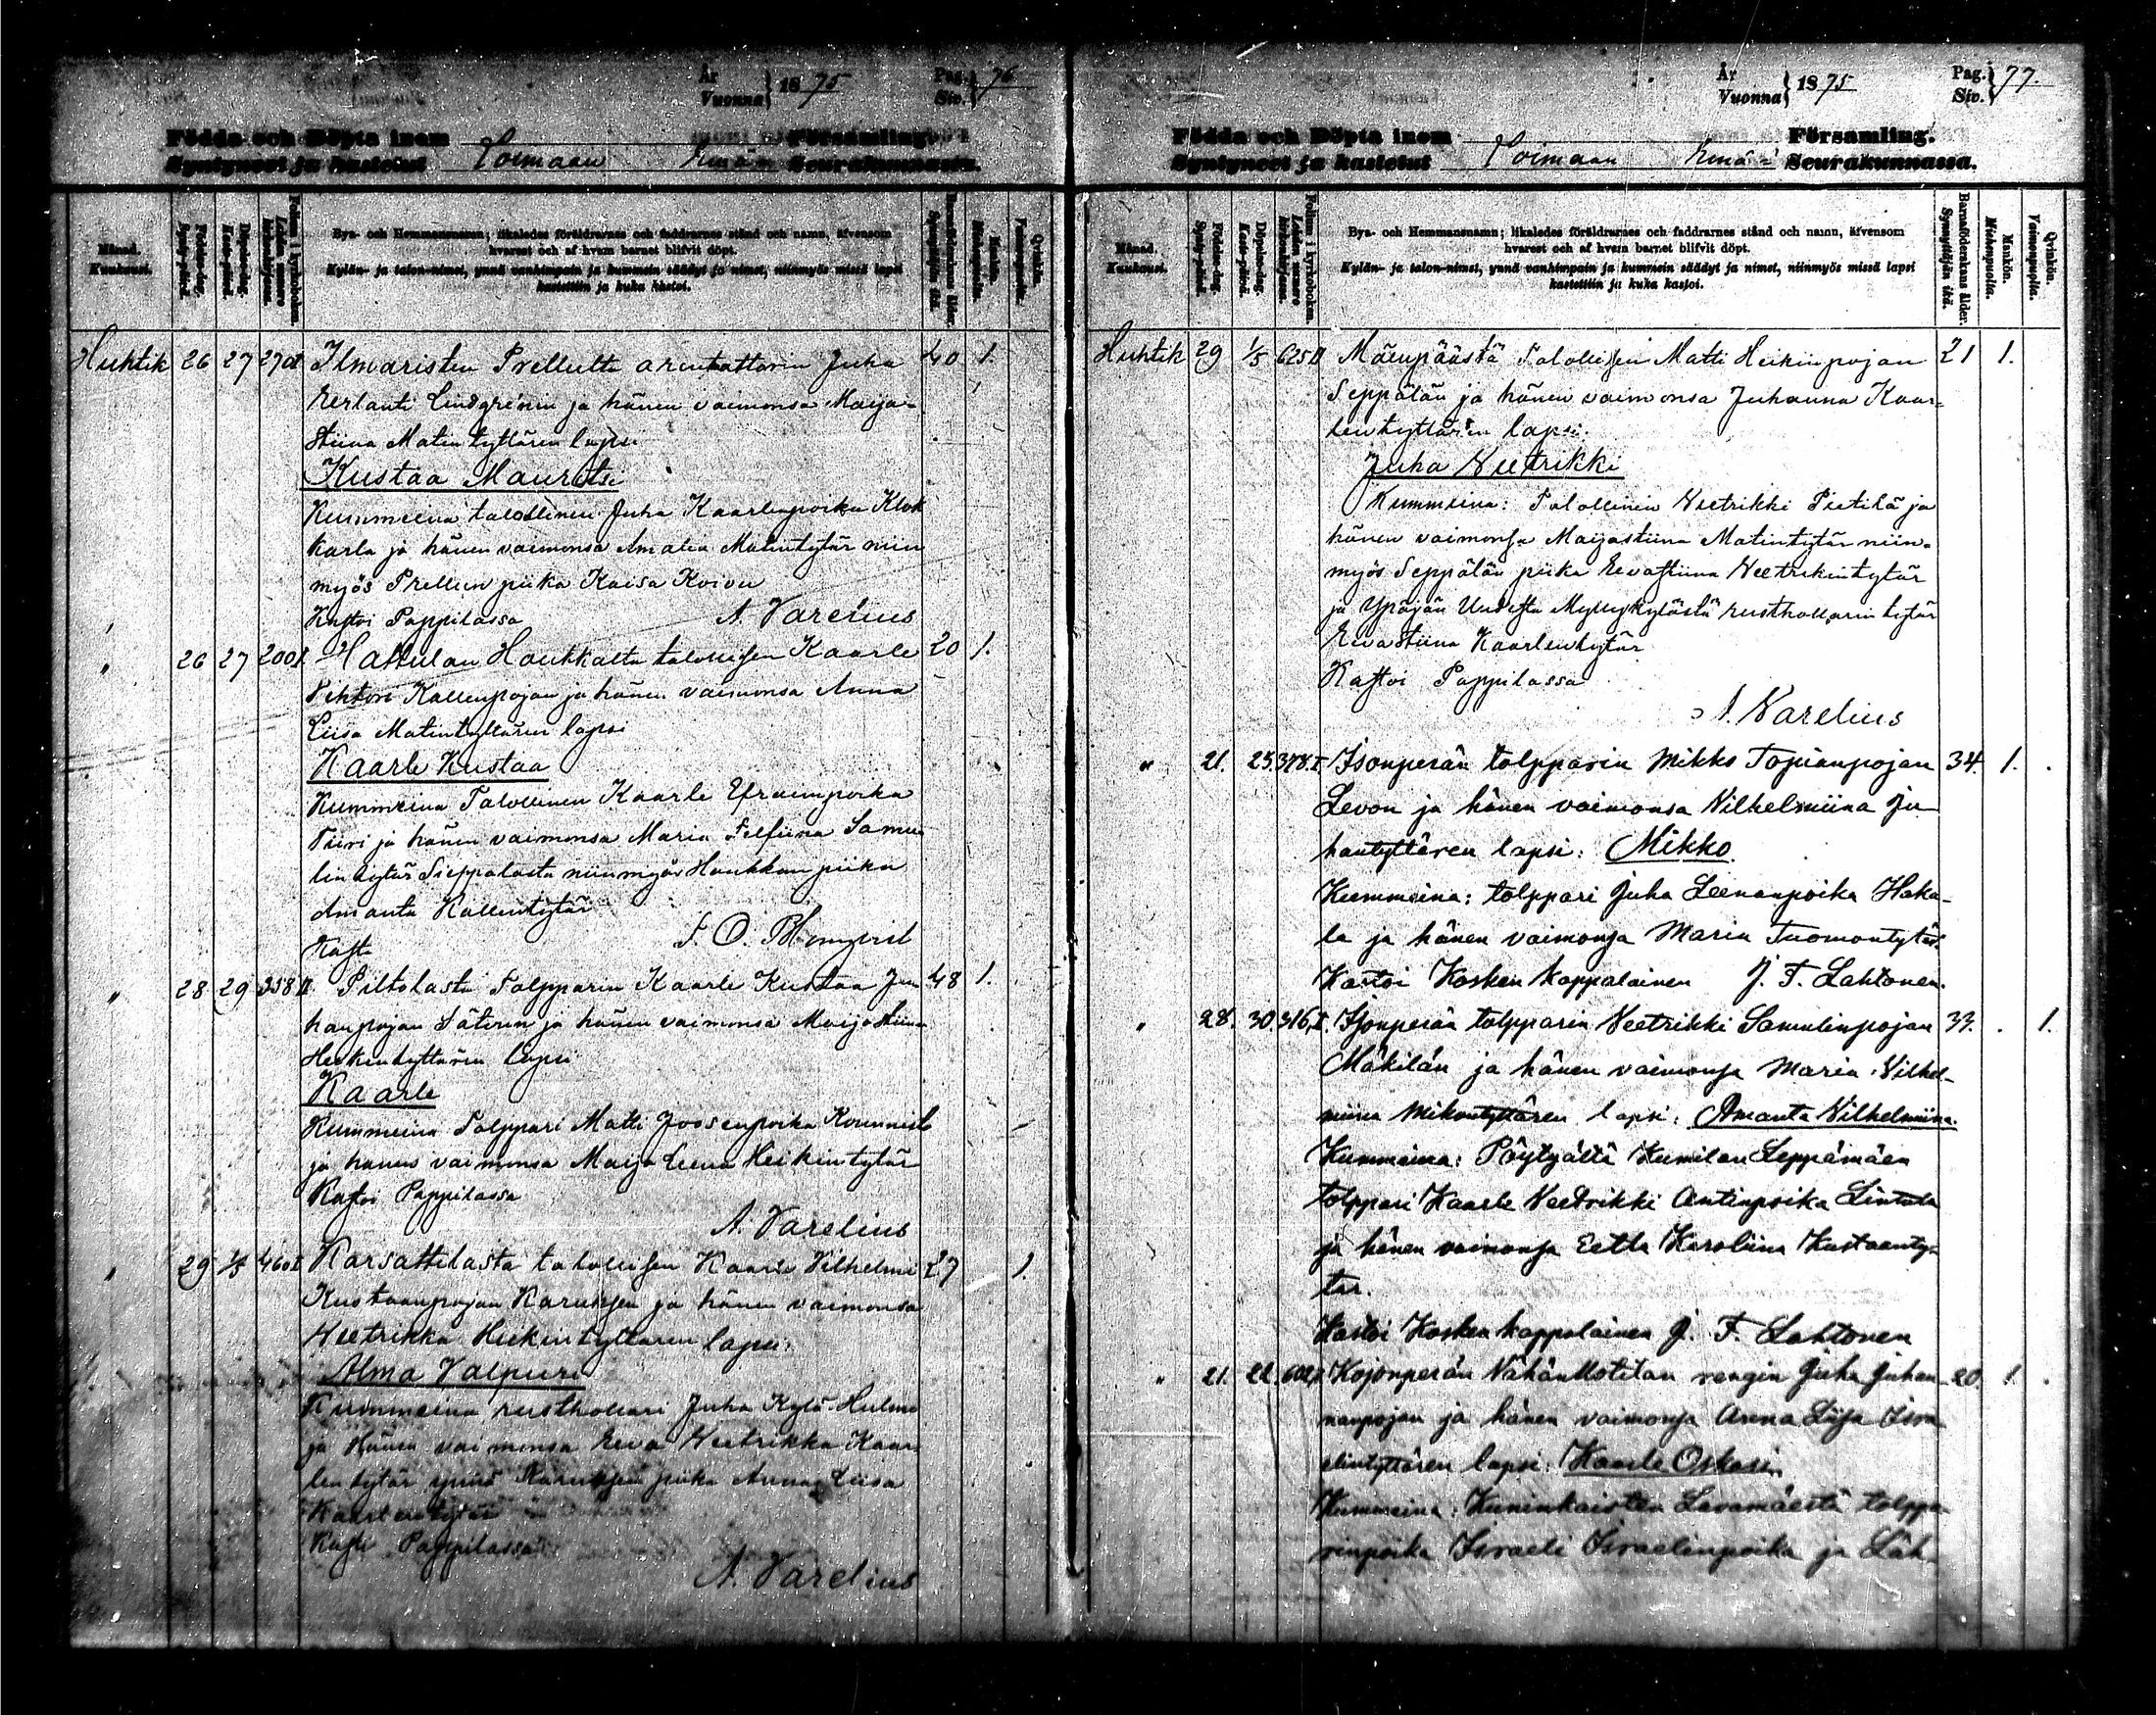 År
Vuonna } 1875
Pag.
Siv. } 76
Födda och Döpta inom Församling.
Syntyneet ja kastetut Loimaan Emän Seurakunnassa.
Månad.
Kuukausi.
Födelse-dag.
Synty-päivä.
Döpelse-dag.
Kaste-päivä.
Folium i kyrkoboken.
Lehden numero kirkonkirjassa.
Bya- och Hemmansnamn; likaledes föräldrarnes och faddrarnes stånd och namn, äfvensom
hvarest och af hvem barnet blifvit döpt.
Kylän- ja talon-nimet, ynnä vanhimpain ja kummein säädyt ja nimet, niinmyös missä lapsi
kastettiin ja kuka kastoi.
Barnaföderskans ålder.
Synnyttäjän ikä.
Mankön.
Miehenpuolia.
Qvinkön.
Vaimonpuolia.
Huhtik 26 27 270I Ilmaristen Prellultta arentattorin Juha 40 1.
Eerlanti Lindgrénin ja hänen vaimonsa Maija-
stiina Matin tyttären lapsi
Kustaa Mauritsi
Kummeina talollinen Juha Kaarlenpoika Klok
karla ja hänen vaimonsa Amalia Matintytär niin
myös Prellun piika Kaisa Koivu
Kastoi Pappilassa A. Varelius
" 26 27 200I Hattulan Haukkalta talollisen Kaarle 20 1.
Vihtori Kallenpojan ja hänen vaimonsa Anna
Liisa Matintyttären lapsi
Kaarle Kustaa
Kummeina Talollinen Kaarle Efraimpoika
Tiiri ja hänen vaimonsa Maria Samue
lin tytär Sieppalasta niinmyös Haukkan piika
Amanta Kallentytär
Kasto F. O. Blomqvist
" 28 29 358II Piltolasta Tolpparin Kaarle Kustaa Ju 48 1.
hanpojan Säterin ja hänen vaimonsa Maijastiina
Heikintyttären lapsi
Kaarle
Kummeina Tolppari Matti Joosenpoika Kounnisto
ja hänen vaimonsa Maija Leena Heikintytär
Kastoi Pappilassa
A. Varelius
" 29 1/5 460I Karsattilasta talollisen Kaarle Vilhelmi 27 1.
Kustaanpojan Karunsen ja hänen vaimonsa
Veetrikka Heikintyttären lapsi
Alma Valpuri
Kummeina rusthollari Juha Kylä-Hulmo
ja Hänen vaimonsa Eeva Veetrikka Kaar
len tytär ynnä Karunsen piika Anna Liisa
Kaarlentytär
Kasti Pappilassa
A. Varelius
År
Vuonna } 1875
Pag.
Siv. } 77.
Födda och Döpta inom Församling.
Syntyneet ja kastetut Loimaan Emä- Seurakunnassa.
Månad.
Kuukausi.
Födelse-dag.
Synty-päivä.
Döpelse-dag.
Kaste-päivä.
Folium i kyrkoboken.
Lehden numero kirkonkirjassa.
Bya- och Hemmansnamn; likaledes föräldrarnes och faddrarnes stånd och namn, äfvensom
hvarest och af hvem barnet blifvit döpt.
Kylän- ja talon-nimet, ynnä vanhimpain ja kummein säädyt ja nimet, niinmyös missä lapsi
kastettiin ja kuka kastoi.
Barnaföderskans ålder.
Synnyttäjän ikä.
Mankön.
Miehenpuolia.
Qvinkön.
Vaimonpuolia.
Huhtik 29 1/5 625II Mäenpäästä Talollisen Matti Heikinpojan 21 1.
Seppälän ja hänen vaimonsa Juhanna Kaar-
lentyttären lapsi.
Juha Veetrikki
Kummeina: Talollinen Veetrikki Pietilä ja
hänen vaimonsa Maijastiina Matintytär niin-
myös Seppälän piika Eevastiina Veetrikintytär
ja Ypäjän Uudesta Myllykylästä rusthollarin tytär
Eevastiina Kaarlentytär
Kastoi Pappilassa
A. Varelius
" 21. 25. 378.I Isonperän tolpparin Mikko Topianpojan 34. 1.
Levon ja hänen vaimonsa Vilhelmiina Ju-
hantyttären lapsi: Mikko
Kummeina: tolppari Juha Leenanpoika Haka-
la ja hänen vaimonsa Maria Tuomontytär.
Kastoi Kosken kappalainen J. F. Lahtonen.
" 28. 30. 316.I Isonperän tolpparin Veetrikki Samulinpojan 33. 1.
Mäkilän ja hänen vaimonsa Maria Vilhel-
miina Mikontyttären lapsi: Amanta Vilhelmiina.
Kummeina: Pöytyältä Kumilan Leppämäen
tolppari Kaarle Veetrikki Antinpoika Lintula
ja hänen vaimonsa Eetla Karoliina Kustaanty-
tär.
Kastoi Kosken kappalainen J. F. Lahtonen
" 21. 22. 602.I Kojonperän Vähän Motilan rengin Juha Juhan- 20. 1.
nanpojan ja hänen vaimonsa Anna Liisa Isra
elintyttären lapsi: Kaarle Oskari.
Kummeina: Kuninkaisten Levamäestä tolppa-
rinpoika Israeli Israelinpoika ja Läh-